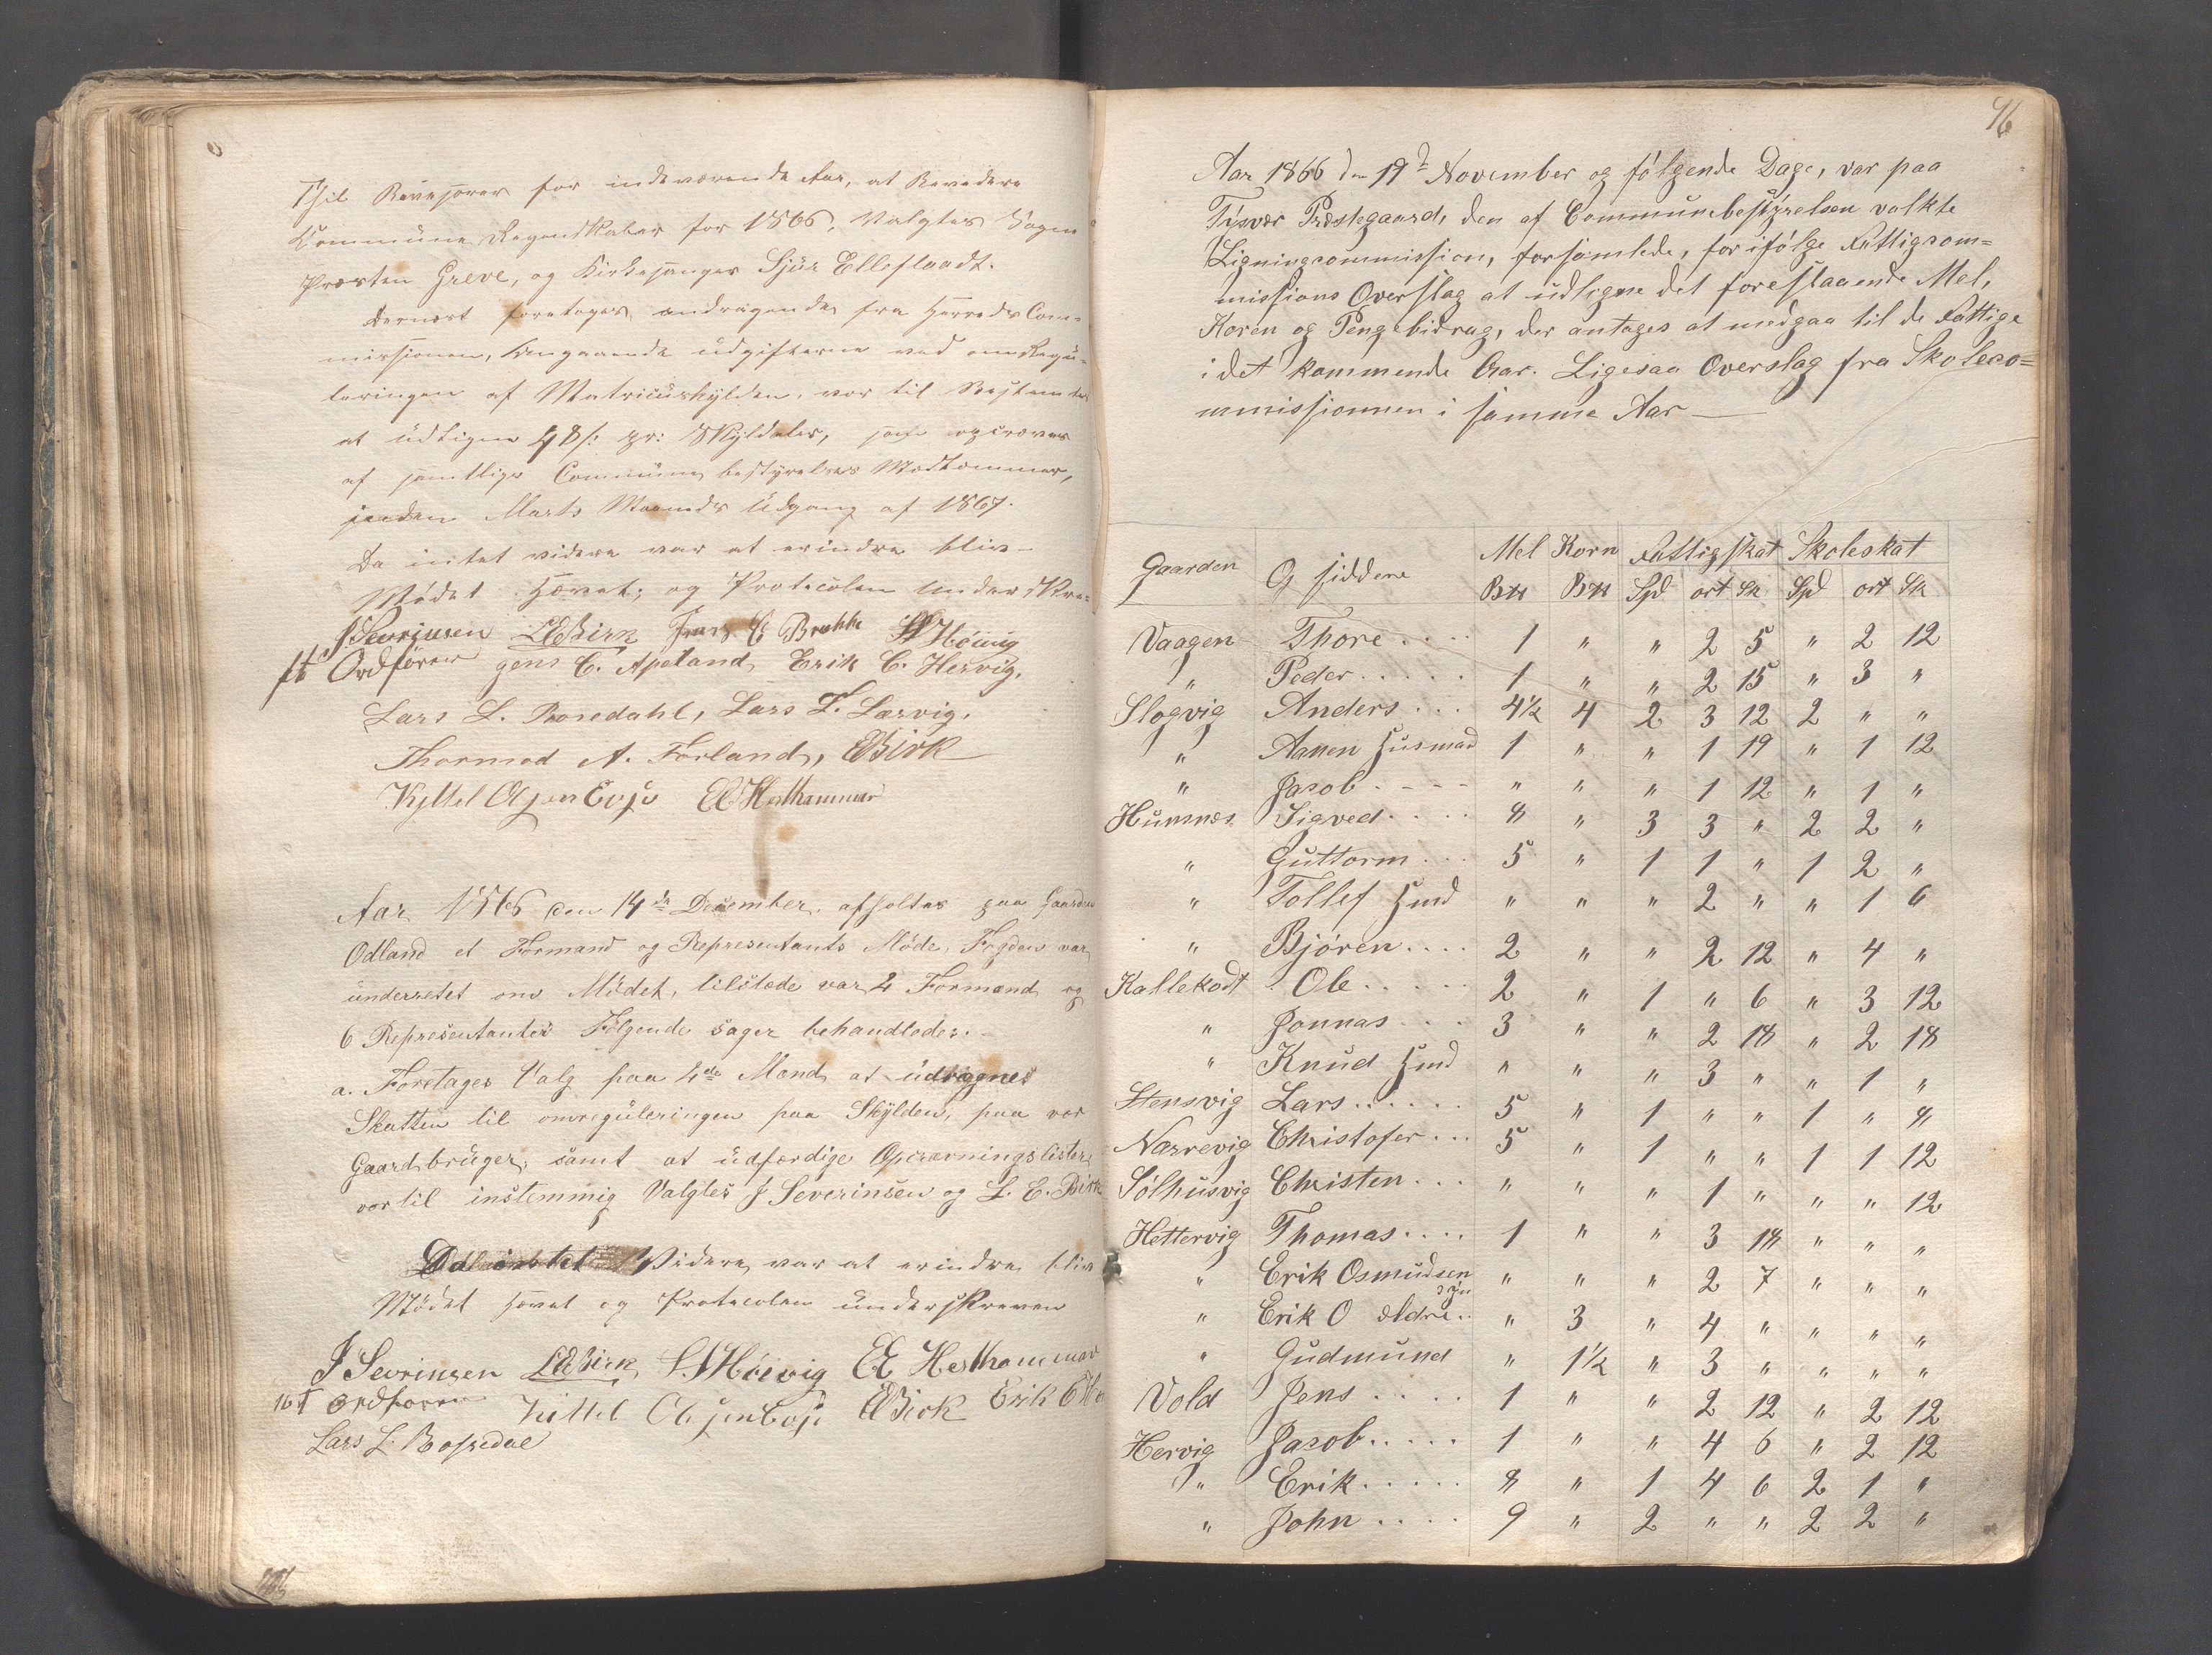 Thil Revisjorer for indeværende Aar, at Revedere
Commune Regenskaber for 1866, Valgtes Sogne
Præsten Greve, og Kirkesanger Sjur Elleflaadt.
Dernæst foretoges andragende fra Herreds Com=
missionen, angaaende udgifterne ved omregu=
leringen af Matriculskylden, vor til Bestemtes
at udligne 48 s: pr: Skylddaler, som opcræves
af samtlige Commune bestyrelses Medlemmer,
inden Marts Maaneds Udgang af 1867.
Da intet videre var at erindre bliv
Mødet Hævet, og Protocolen underskre=
J Sevrinsen LEBirk S Høivig
Ordfører Jens C. Apeland, Erik C. Hervig,
Lars L. Borsedahl, Lars L. Lærvig,
Thormod A. Førland, EBirk
Kyttel Olsen Evje EE Hesthammer
Aar 1866 den 14de December afholtes paa Gaarden
Odland et Formand og Representants Møde, Fogden var
underretet om Mødet, tilstede var 4 Formænd og
6 Representanter Følgende sager behandledes.
a. Foretages Valg paa 4de Mænd, at udregnes
Skatten til omreguleringen paa Skylden, paa vær
Gaardbruger, samt at udfærdige Opcrævningslister
vor til instemmig Valgtes J Severinsen og L. E. Birk
Da intet Videre var at erindre bliv
Mødet hævet og Protocolen underskreven
J Sevrinsen LEBirk S. Høivig EE Hesthammer
Ordfører Kittel Olsen Evje EBirk Erik C He
Lars L. Bosredal
96
Aar 1866 den 19d November og følgende Dage, var paa
Tysvær Præstegaard, den af Communebestyrelsen valkte
Ligningcommission, forsamlede, for ifølge Fattigcom=
missions Overslag at udligne det forestaaende Mel,
Koren og Pengebidrag, der antages at medgaa til de Fattige
i det kommende Aar. Ligesaa Overslag fra Skoleco=
mmissionnen i samme Aar —
Gaarden Opsiddere Mel Korn Fattigskat Skoleskat
B℔ B℔ Spd ort Sk Spd ort Sk
Vaagen Thore.... 1 " " 2 5 " 2 12
" Peder..... 1 " " 2 15 " 3 "
Slogvig Anders... 4½ 4 2 3 12 2 " "
" Aanen Husmad 1 " " 1 19 " 1 12
" Jacob.... " " " 1 12 " 1 "
Humnes Sigved.... 8 " 3 3 " 2 2 "
" Guttorm... 5 " 1 1 " 1 2 "
" Tollef Hmd " " " 2 " " 1 6
" Bjøren.... 2 " " 2 12 " 4 "
Kallekodt Ole..... 2 " 1 " 6 " 3 12
" Jonnas.... 3 " " 2 18 " 2 18
" Knud Hmd " " " 3 " " 1 "
Stensvig Lars...... 5 " 1 " " 1 " 8
Nærrevig Christofer... 5 " 1 " " 1 1 12
Sølhusvig Christen... " " " 1 " " " 12
Hettervig Thomas.... 1 " " 3 18 " " "
" Erik Osmudsen " " " 2 7 " " "
" Erik O ældre.. " 3 " 4 " " " "
" Gudmund " 1½ " 3 " " " "
Vold Jens.... 1 " " 2 12 " 2 12
Hervig Jacob..... 1 " " 4 6 " 2 12
" Erik..... 8 " 1 4 6 2 1 "
" John.... 9 " 2 " " 2 2 "